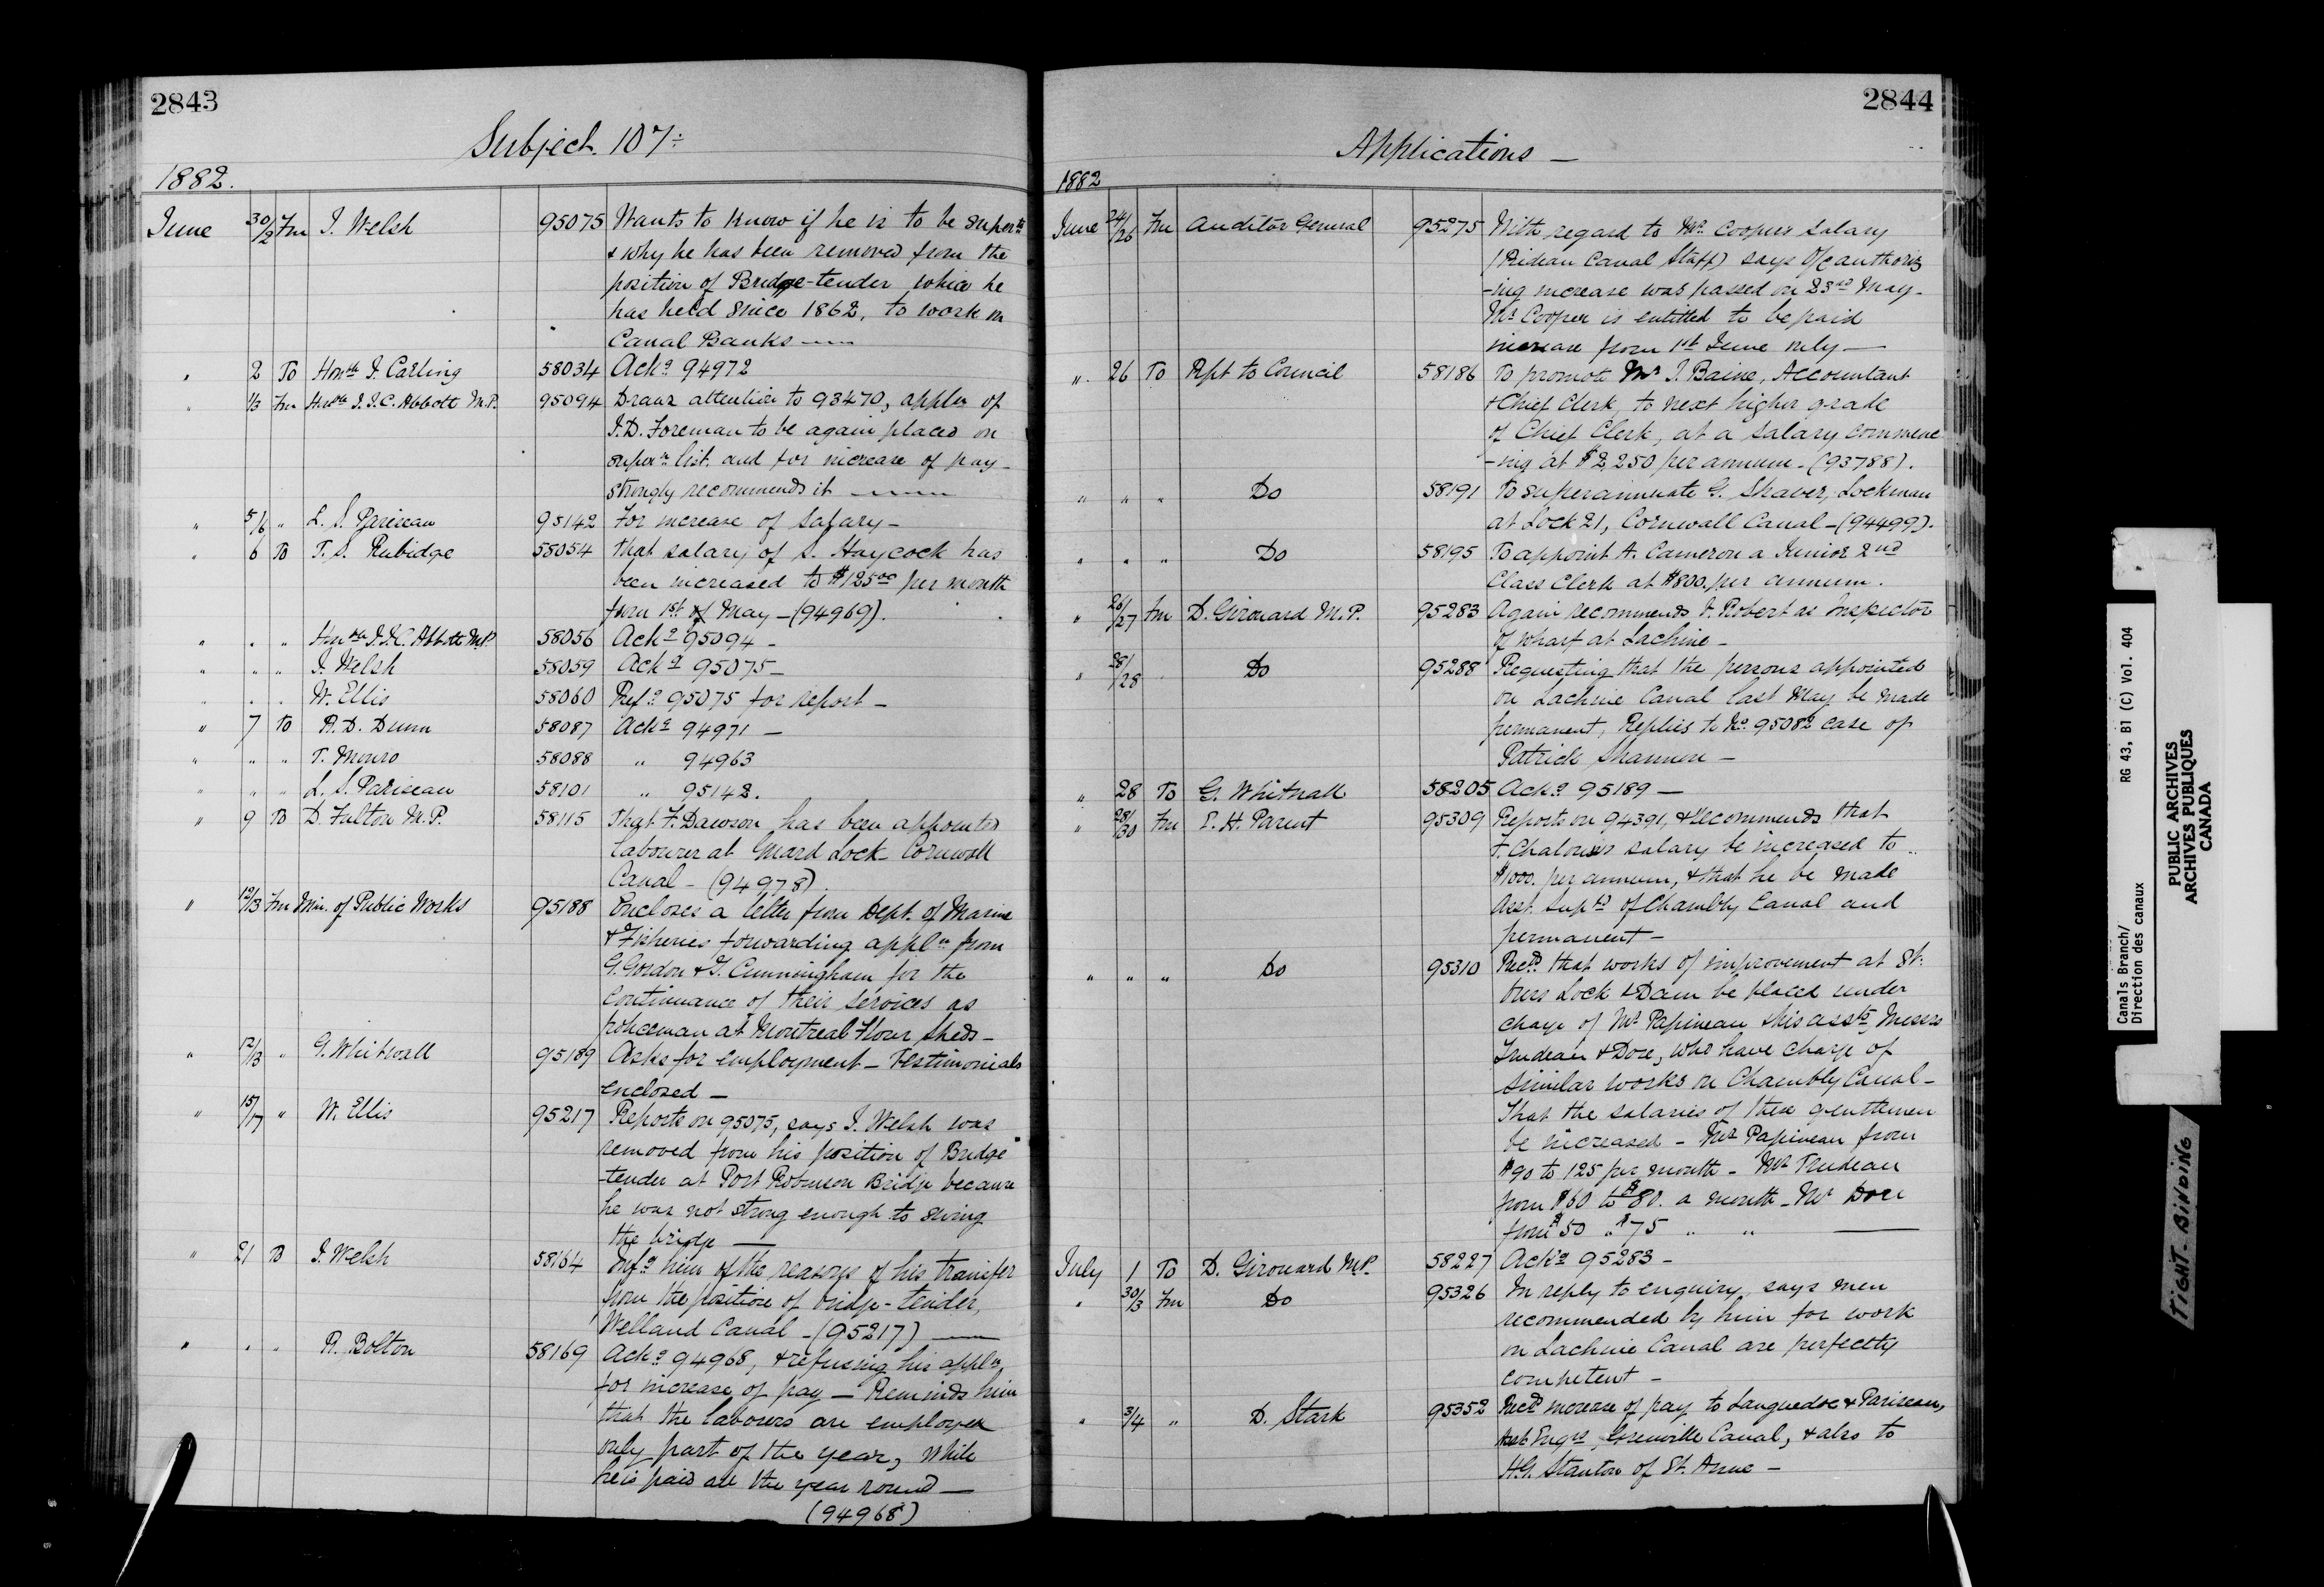 2843
Subject. 107÷
1882.
June 30/2 Fm J. Welsh 95075 Wants to know if he is to be super:
& why he has been removed from the
position of Bridge-tender which he
has held since 1862, to work on
Canal Banks —
" 2 To Honble J. Carling 58034 Ackg 94972
" 1/3 Fm Honble J. J. C. Abbott M.P. 95094 Draws attention to 93470, appln of
J. D. Foreman to be again placed on
super list. and for increase of pay-
strongly recommends it —
" 5/6 " L. S. Pariseau 95142 For increase of salary —
" 6 To T. S. Rubidge 58054 That salary of S. Haycock has
been increased to $125.00 per month
from 1st of May — (94969).
" " " Honble J. J. C. Abbott M.P. 58056 Ackg 95094 —
" " " J. Welsh 58059 Ackg 95075 —
" " " W. Ellis 58060 Refg 95075 for report —
" 7 To R. D. Dunn 58087 Ackg 94971 —
" " " T. Monro 58088 " 94963
" " " L. S. Pariseau 58101 " 95142.
" 9 To D. Fulton M.P. 58115 That F. Dawson has been appointed
labourer at Guard Lock. Cornwall
Canal — (94978).
" 12/13 Fm Min. of Public Works 95188 Encloses a letter from Dept. of Marine
& Fisheries forwarding appln from
G. Gordon & J. Cunningham for the
continuance of their services as
policeman at Montreal Flour Sheds —
" 12/13 " G. Whitnall 95189 Asks for employment — Testimonials
enclosed —
" 15/17 " W. Ellis 95217 Reports on 95075, says J. Welsh was
removed from his position of Bridge
-tender at Port Robinson Bridge because
he was not strong enough to swing
the bridge —
" 21 To J. Welsh 58164 Infg him of the reasons of his transfer
from the position of bridge-tender,
Welland Canal — (95217) —
" " " R. Bolton 58169 Ackg 94968, & refusing his appln
for increase of pay — Reminds him
that the labourers are employed
only part of the year, while
he is paid all the year round —
(94968)
2844
Applications —
1882
June 24/26 Fm Auditor General 95275 With regard to Mr. Coopers salary
(Rideau Canal Staff) says O/C authoriz
-ing increase was passed on 23rd May.
Mr Cooper is entitled to be paid
increase from 1st June only —
" 26 To Rpt to Council 58186 To promote Mr J. Baine, Accountant
& Chief Clerk, to next higher grade
of Chief Clerk, at a salary commenc
-ing at $2,250 per annum. (93788).
" " " Do 58191 To superannuate G. Shaver, Lockman
at Lock 21, Cornwall Canal — (94499).
" " " Do 58195 To appoint A. Cameron a Junior 2nd
Class Clerk at $800. per annum.
" 26/27 Fm D. Girouard M.P. 95283 Again recommends J. Robert as Inspector
of wharf at Lachine —
" 28/28 " Do 95288 Requesting that the persons appointed
on Lachine Canal last May be made
permanent, Replies to No. 95082 case of
Patrick Shannon —
" 28 To G. Whitnall 58205 Ackg 95189 —
" 28/30 Fm E. H. Parent 95309 Reports on 94391, & recommends that
F. Chalou's salary be increased to
$1000. per annum, & that he be made
Asst. Supt of Chambly Canal and
permanent —
" " " Do 95310 Recds that works of improvement at St.
Ours Lock & Dam be placed under
charge of Mr Papineau & his assts, Messrs
Trudeau & Dore, who have charge of
similar works on Chambly Canal —
That the salaries of these gentlemen
be increased — Mr. Papineau from
$90 to 125 per month — Mr Trudeau
from $60 to $80. a month — Mr Dore
from $50 " $75 " " —
July 1 To D. Girouard M.P. 58227 Ackg 95283 —
" 30/3 Fm Do 95326 In reply to enquiry, says men
recommended by him for work
on Lachine Canal are perfectly
competent —
" 3/4 " D. Stark 95352 Recds increase of pay to Languedoc & Pariseau,
Asst Engrs, Grenville Canal, & also to
H. G. Stanton of St. Anne —
Canals Branch/ RG 43, B1 (C) Vol. 404
Direction des canaux
PUBLIC ARCHIVES
ARCHIVES PUBLIQUES
CANADA
TIGHT BINDING